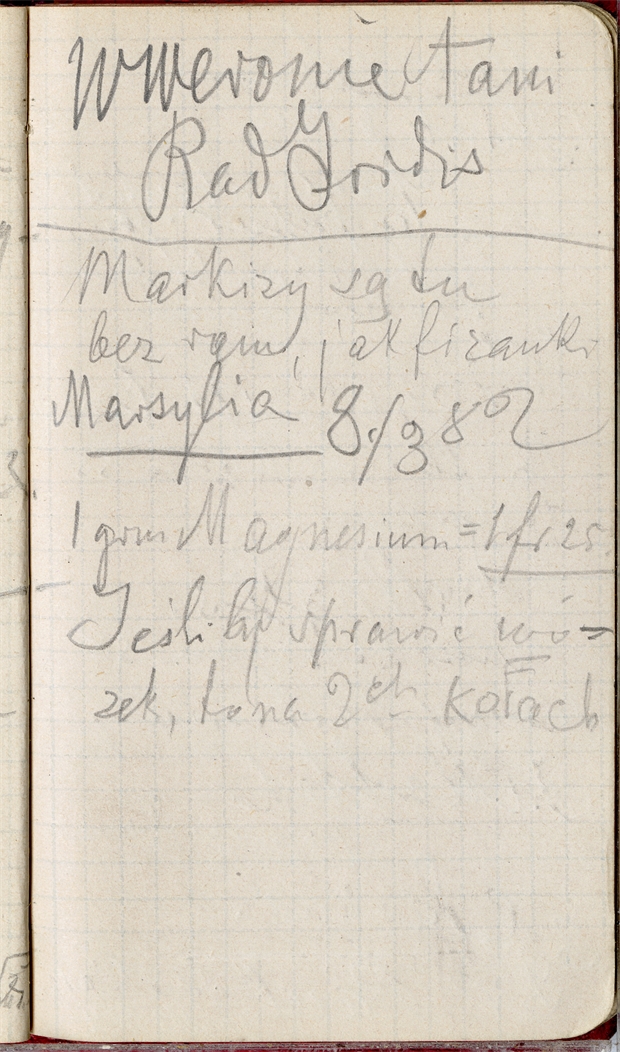 W Weronie tani
Rad Jridis
Markizy są tu
bez ram, jak firanki
Marsylia 8./3 82
1 grm Magnesium = 1 fr 25
Jeśliby sprawić wó=
zek, to na 2ch kołach